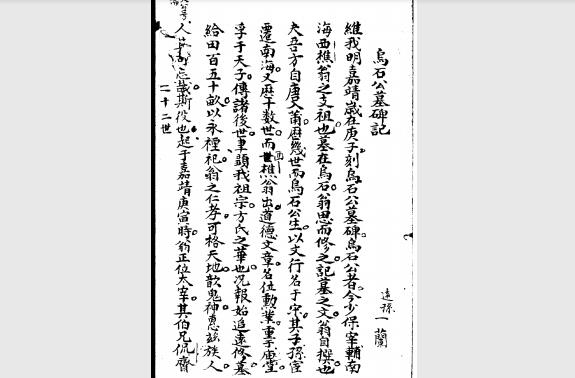 烏石公墓碑記
遠孫一蘭
維我明嘉靖歲在庚子刻烏石公墓碑烏石公者今少保宰輔南
海西樵翁之文祖也墓在烏石翁思而修之記墓之文翁自撰也
夫吾方自唐入莆歷幾世而烏石公生以文行名于宋其子孫宦
遷南海又歷十數世而西樵翁出道德文章名位勳業重于廟堂
孚于天子傳諸後世車讀我祖宗方氏之華也況報始追遠修墓
給田百五十畝以永禋祀翁之仁孝可格天地歆鬼神惠玆族人
人其可忘哉斯役也起于嘉靖庚寅時翁正位太宰其伯兄侃齋
二十二世